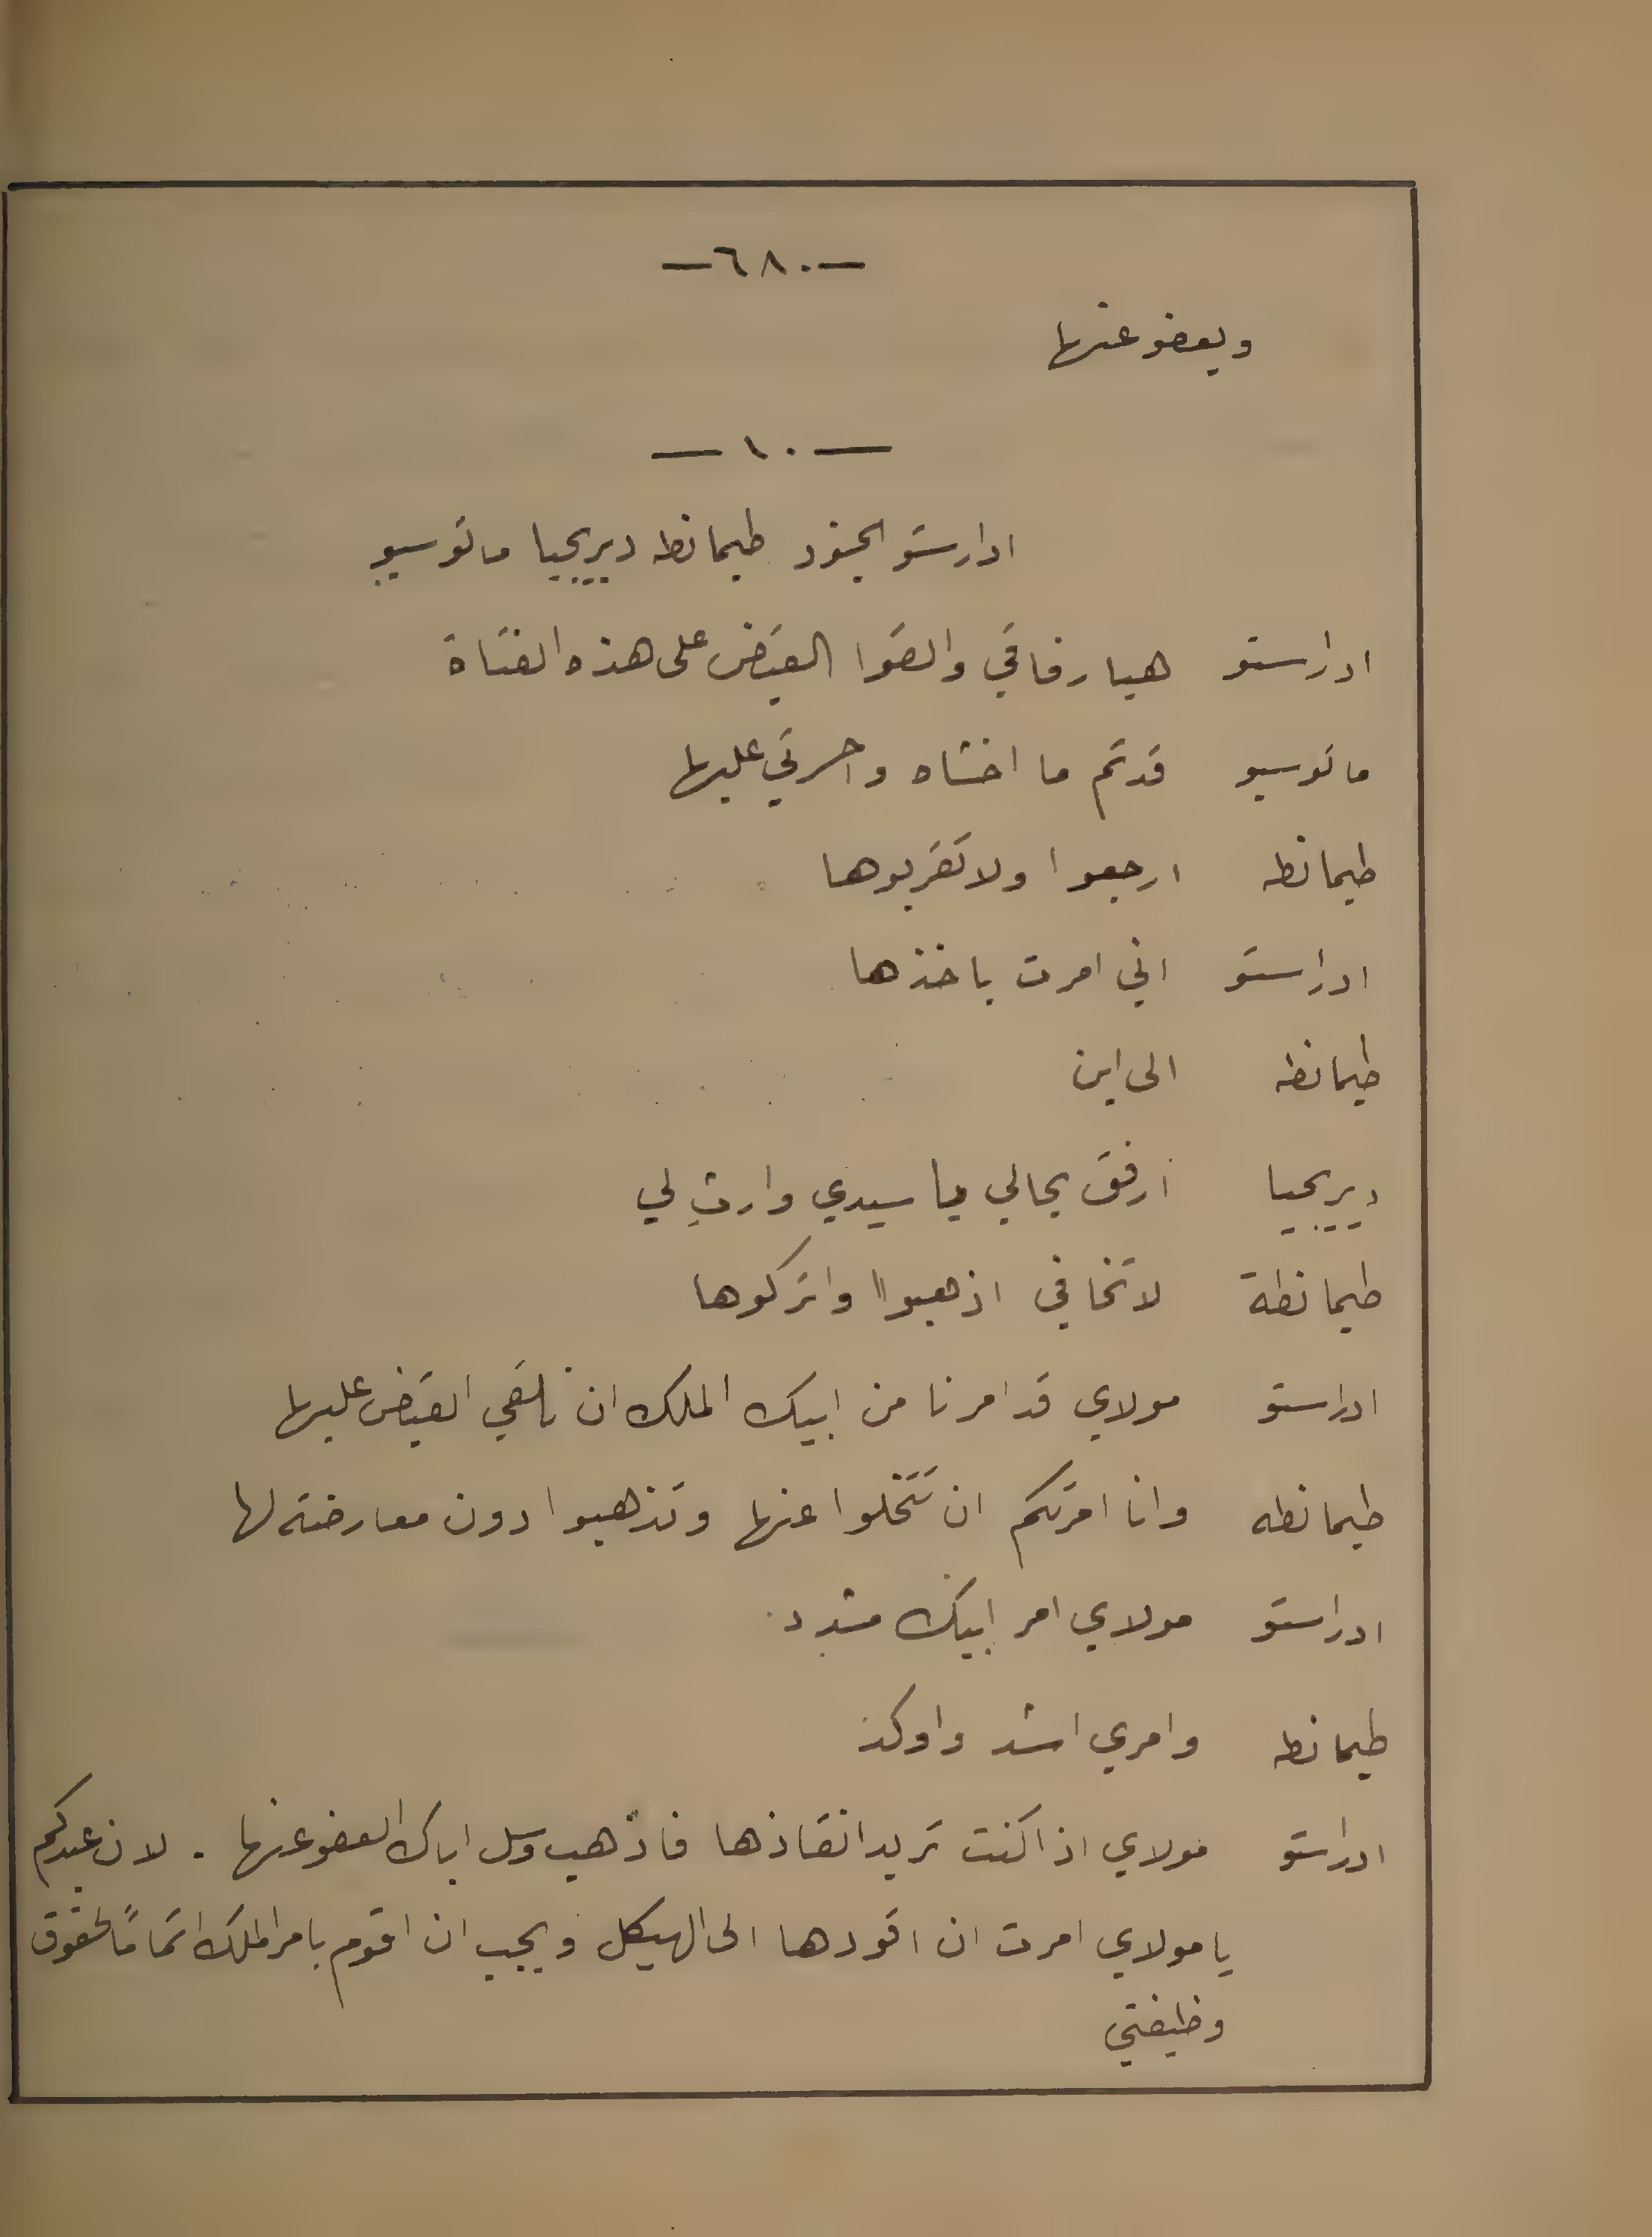 —٦٨٠—
ويعفو عنها
— ١٠ —
ادارستو الجنود طيمانطه ديريجيا ماتوسيو
ادراستو هيا رفاقي والقوا القبض على هذه الفتاة
ماتوسيو قد تم ما اخشاه واحسرتي عليها
طيمانطه ارجعوا ولا تقربوها
ادراستو اني امرت باخذها
طيمانطه الى اين
ديريجيا ارفق بحالي يا سيدي وارثِ لي
طيمانطة لا تخافي اذهبوا واتركوها
ادراستو مولاي قد امرنا من ابيك الملك ان نلقي القبض عليها
طيمانطه وانا امرتكم ان تتخلوا عنها وتذهبوا دون معارضة لها
ادراستو مولاي امر ابيك مشدد
طيمانطه وامري اشد واوكد
ادراستو مولاي اذا كنت تريد انقاذها فاذهب وسل اباك العفو عنها . لان عبدكم
يا مولاي امرت ان اقودها الى الهيكل ويجب ان اقوم بامر الملك اتمامًا لحقوق
وظيفتي